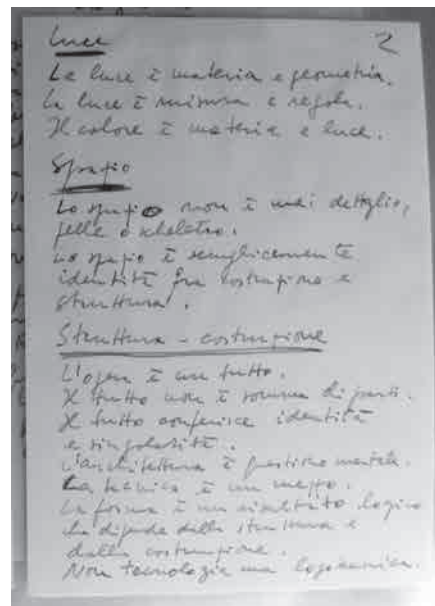 2
Luce
La luce è materia e geometria.
La luce è misura e regola.
Il colore è materia e luce.
Spazio
Lo spazio non è mai dettaglio,
pelle o scheletro.
Lo spazio è semplicemente
identità fra costruzione e
struttura.
Struttura - costruzione
L'opera è un tutto.
Il tutto non è somma di parti.
Il tutto conferisce identità
e singolarità.
L'architettura è questione mentale.
La tecnica è un mezzo.
La forma è un risultato logico
che dipende dalla struttura e
dalla costruzione.
Non tecnologia ma